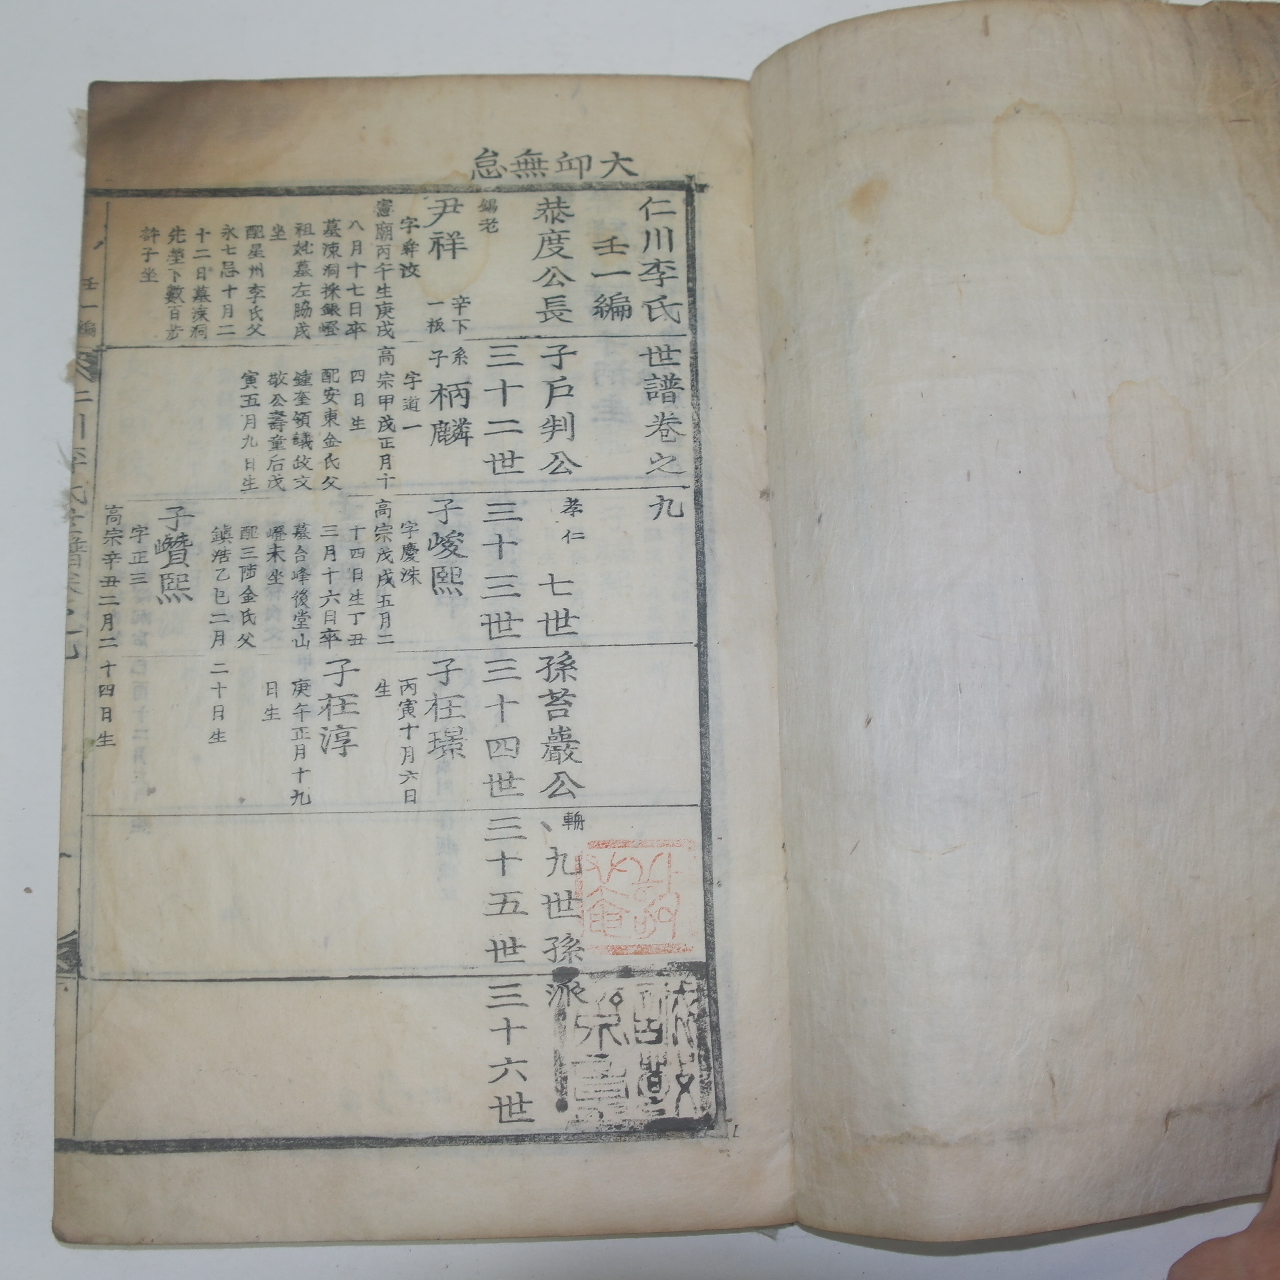 大卬無怠
仁川李氏世譜卷之九
壬一編
恭度公長子戶判公孝仁七世孫苔巖公輈九世孫派
三十二世 三十三世 三十四世 三十五世 三十六世
錫老
尹祥 辛下一板
字舜汝
憲廟丙午生庚戌
八月十七日卒
墓湅洞採鍬嶝
祖妣墓左脇戌
坐
配星州李氏父
永七忌十月二
十二日墓湅洞
先塋下數百步
許子坐
系子柄麟
字道一
高宗甲戌正月十
四日生
配安東金氏父
鍾奎領議政文
敬公壽童后戊
寅五月九日生
子峻熙
字慶洙
高宗戊戌五月二
十四日生丁丑
三月十六日卒
墓台峰後堂山
嶝未坐
配三陟金氏父
鎭浩乙巳二月二十日生
子在璟
丙寅十月六日
生
子在淳
庚午正月十九
日生
子巑熙
字正三
高宗辛丑二月二十四日生
壬一編
仁川李氏世譜卷之九